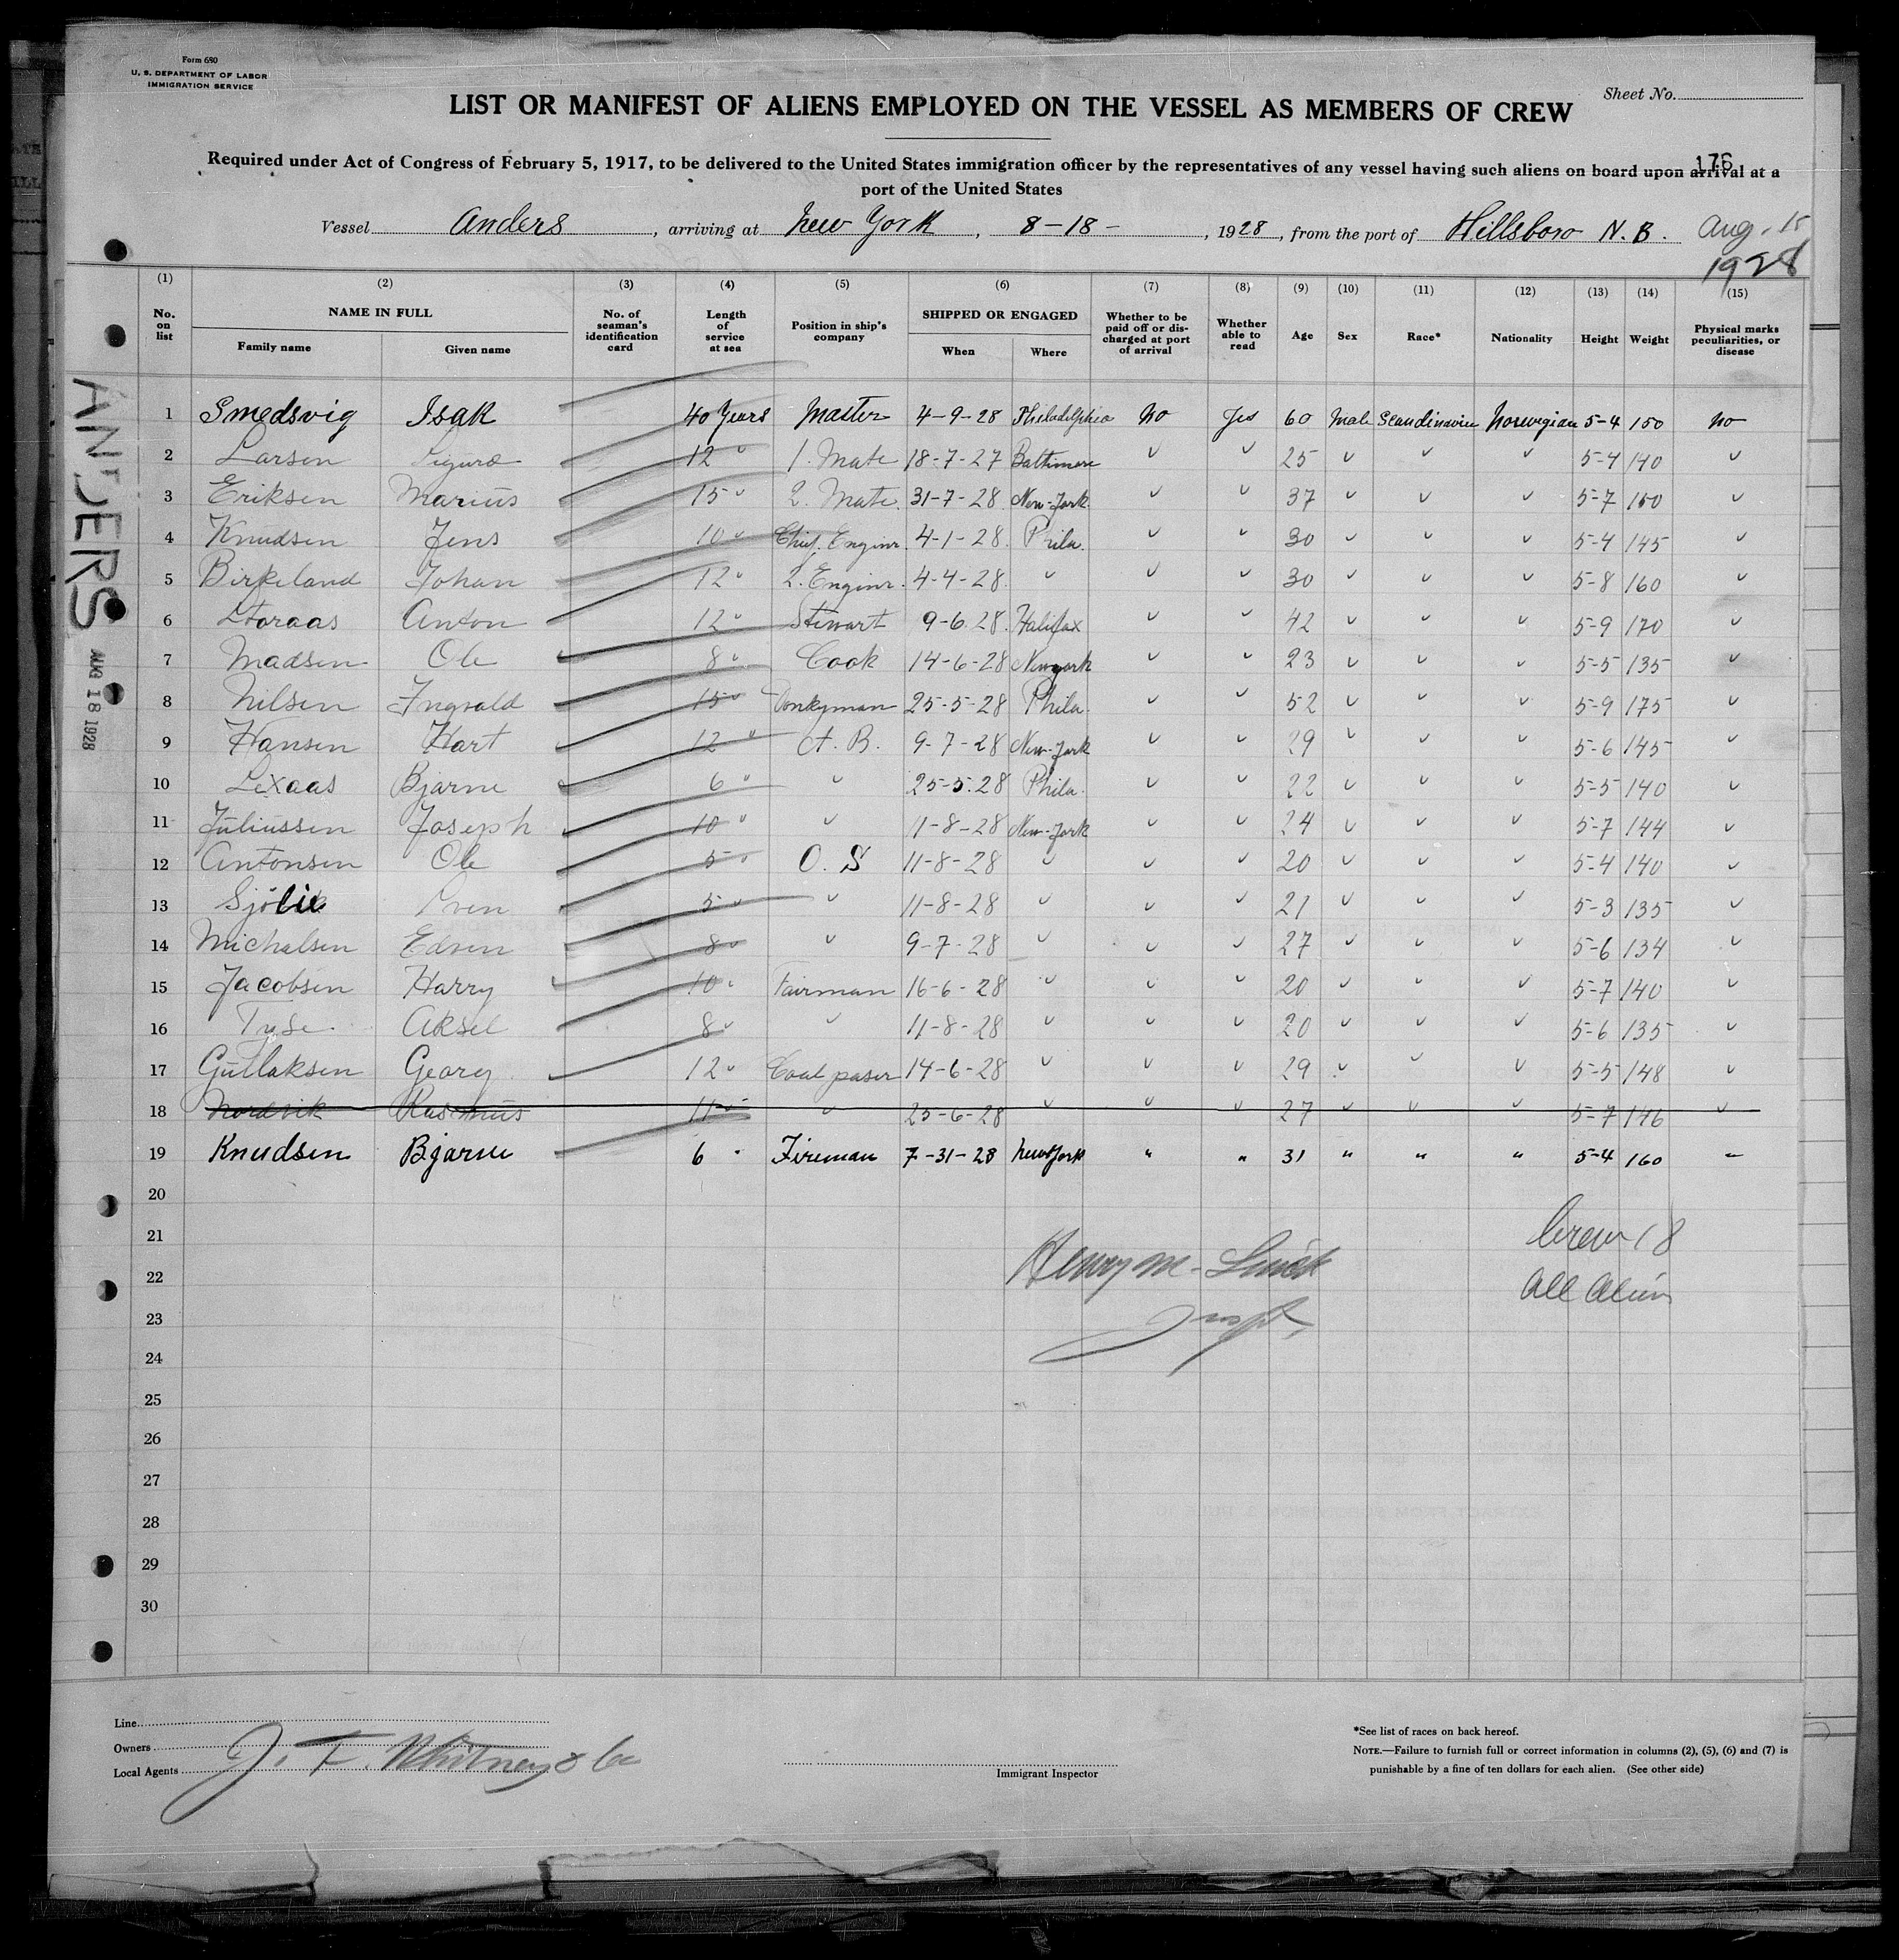 Form 680
U. S. DEPARTMENT OF LABOR
IMMIGRATION SERVICE
Sheet No.
LIST OR MANIFEST OF ALIENS EMPLOYED ON THE VESSEL AS MEMBERS OF CREW
176
Required under Act of Congress of February 5, 1917, to be delivered to the United States immigration officer by the representatives of any vessel having such aliens on board upon arrival at a
port of the United States
Vessel Anders, arriving at New York, 8-18-, 1928, from the port of Hillsboro N.B. Aug. 15
1928
(1) (2) (3) (4) (5) (6) (7) (8) (9) (10) (11) (12) (13) (14) (15)
No. on list NAME IN FULL Family name Given name No. of seaman's identification card Length of service at sea Position in ship's company SHIPPED OR ENGAGED When Where Whether to be paid off or discharged at port of arrival Whether able to read Age Sex Race* Nationality Height Weight Physical marks peculiarities, or disease
1 Smedsvig Isak 40 Years Master 4-9-28 Philadelphia No Yes 60 Male Scandinavian Norwegian 5-4 150 No
2 Larsen Sigurd 12 " 1. Mate 18-7-27 Baltimore " " 25 " " " 5-4 140 "
3 Eriksen Marius 15 " 2. Mate 31-7-28 New-York " " 37 " " " 5-7 160 "
4 Knudsen Jens 10 " Chief. Enginr. 4-1-28 Phila. " " 30 " " " 5-4 145 "
5 Birkeland Johan 12 " 2. Enginr. 4-4-28 " " " 30 " " " 5-8 160 "
6 Anton 12 " Stewart 9-6-28 Halifax " " 42 " " " 5-9 170 "
7 Madsen Ole 8 " Cook 14-6-28 New york " " 23 " " " 5-5 135 "
8 Nilsen Ingvald 15 " Donkyman 25-5-28 Phila. " " 52 " " " 5-9 175 "
9 Hansen Hart 12 " A. B. 9-7-28 New-York " " 29 " " " 5-6 145 "
10 Lexaas Bjarne 6 " " 25-5-28 Phila. " " 22 " " " 5-5 140 "
11 Juliussen Joseph 10 " " 11-8-28 New-York " " 24 " " " 5-7 144 "
12 Antonsen Ole 5 " O. S 11-8-28 " " " 20 " " " 5-4 140 "
13 Sjölie 5 " " 11-8-28 " " " 21 " " " 5-3 135 "
14 Michalsen Edven 8 " " 9-7-28 " " " 27 " " " 5-6 134 "
15 Jacobsen Harry 10 " Fairman 16-6-28 " " " 20 " " " 5-7 140 "
16 Aksel 8 " " 11-8-28 " " " 20 " " " 5-6 135 "
17 Gullaksen Georg 12 " Coal paser 14-6-28 " " " 29 " " " 5-5 148 "
18 Nordvik Rasmus 11 " " 25-6-28 " " " 27 " " " 5-7 146 "
19 Knudsen Bjarne 6 " Fireman 7-31-28 New York " " 31 " " " 5-4 160 "
20
21
22
23
24
25
26
27
28
29
30
Crew 18
All Alien
Henry M.
Insp.
ANDERS
AUG 18 1928
Line
Owners
Local Agents J. F. Whitney & Co
Immigrant Inspector
*See list of races on back hereof.
NOTE.—Failure to furnish full or correct information in columns (2), (5), (6) and (7) is
punishable by a fine of ten dollars for each alien. (See other side)